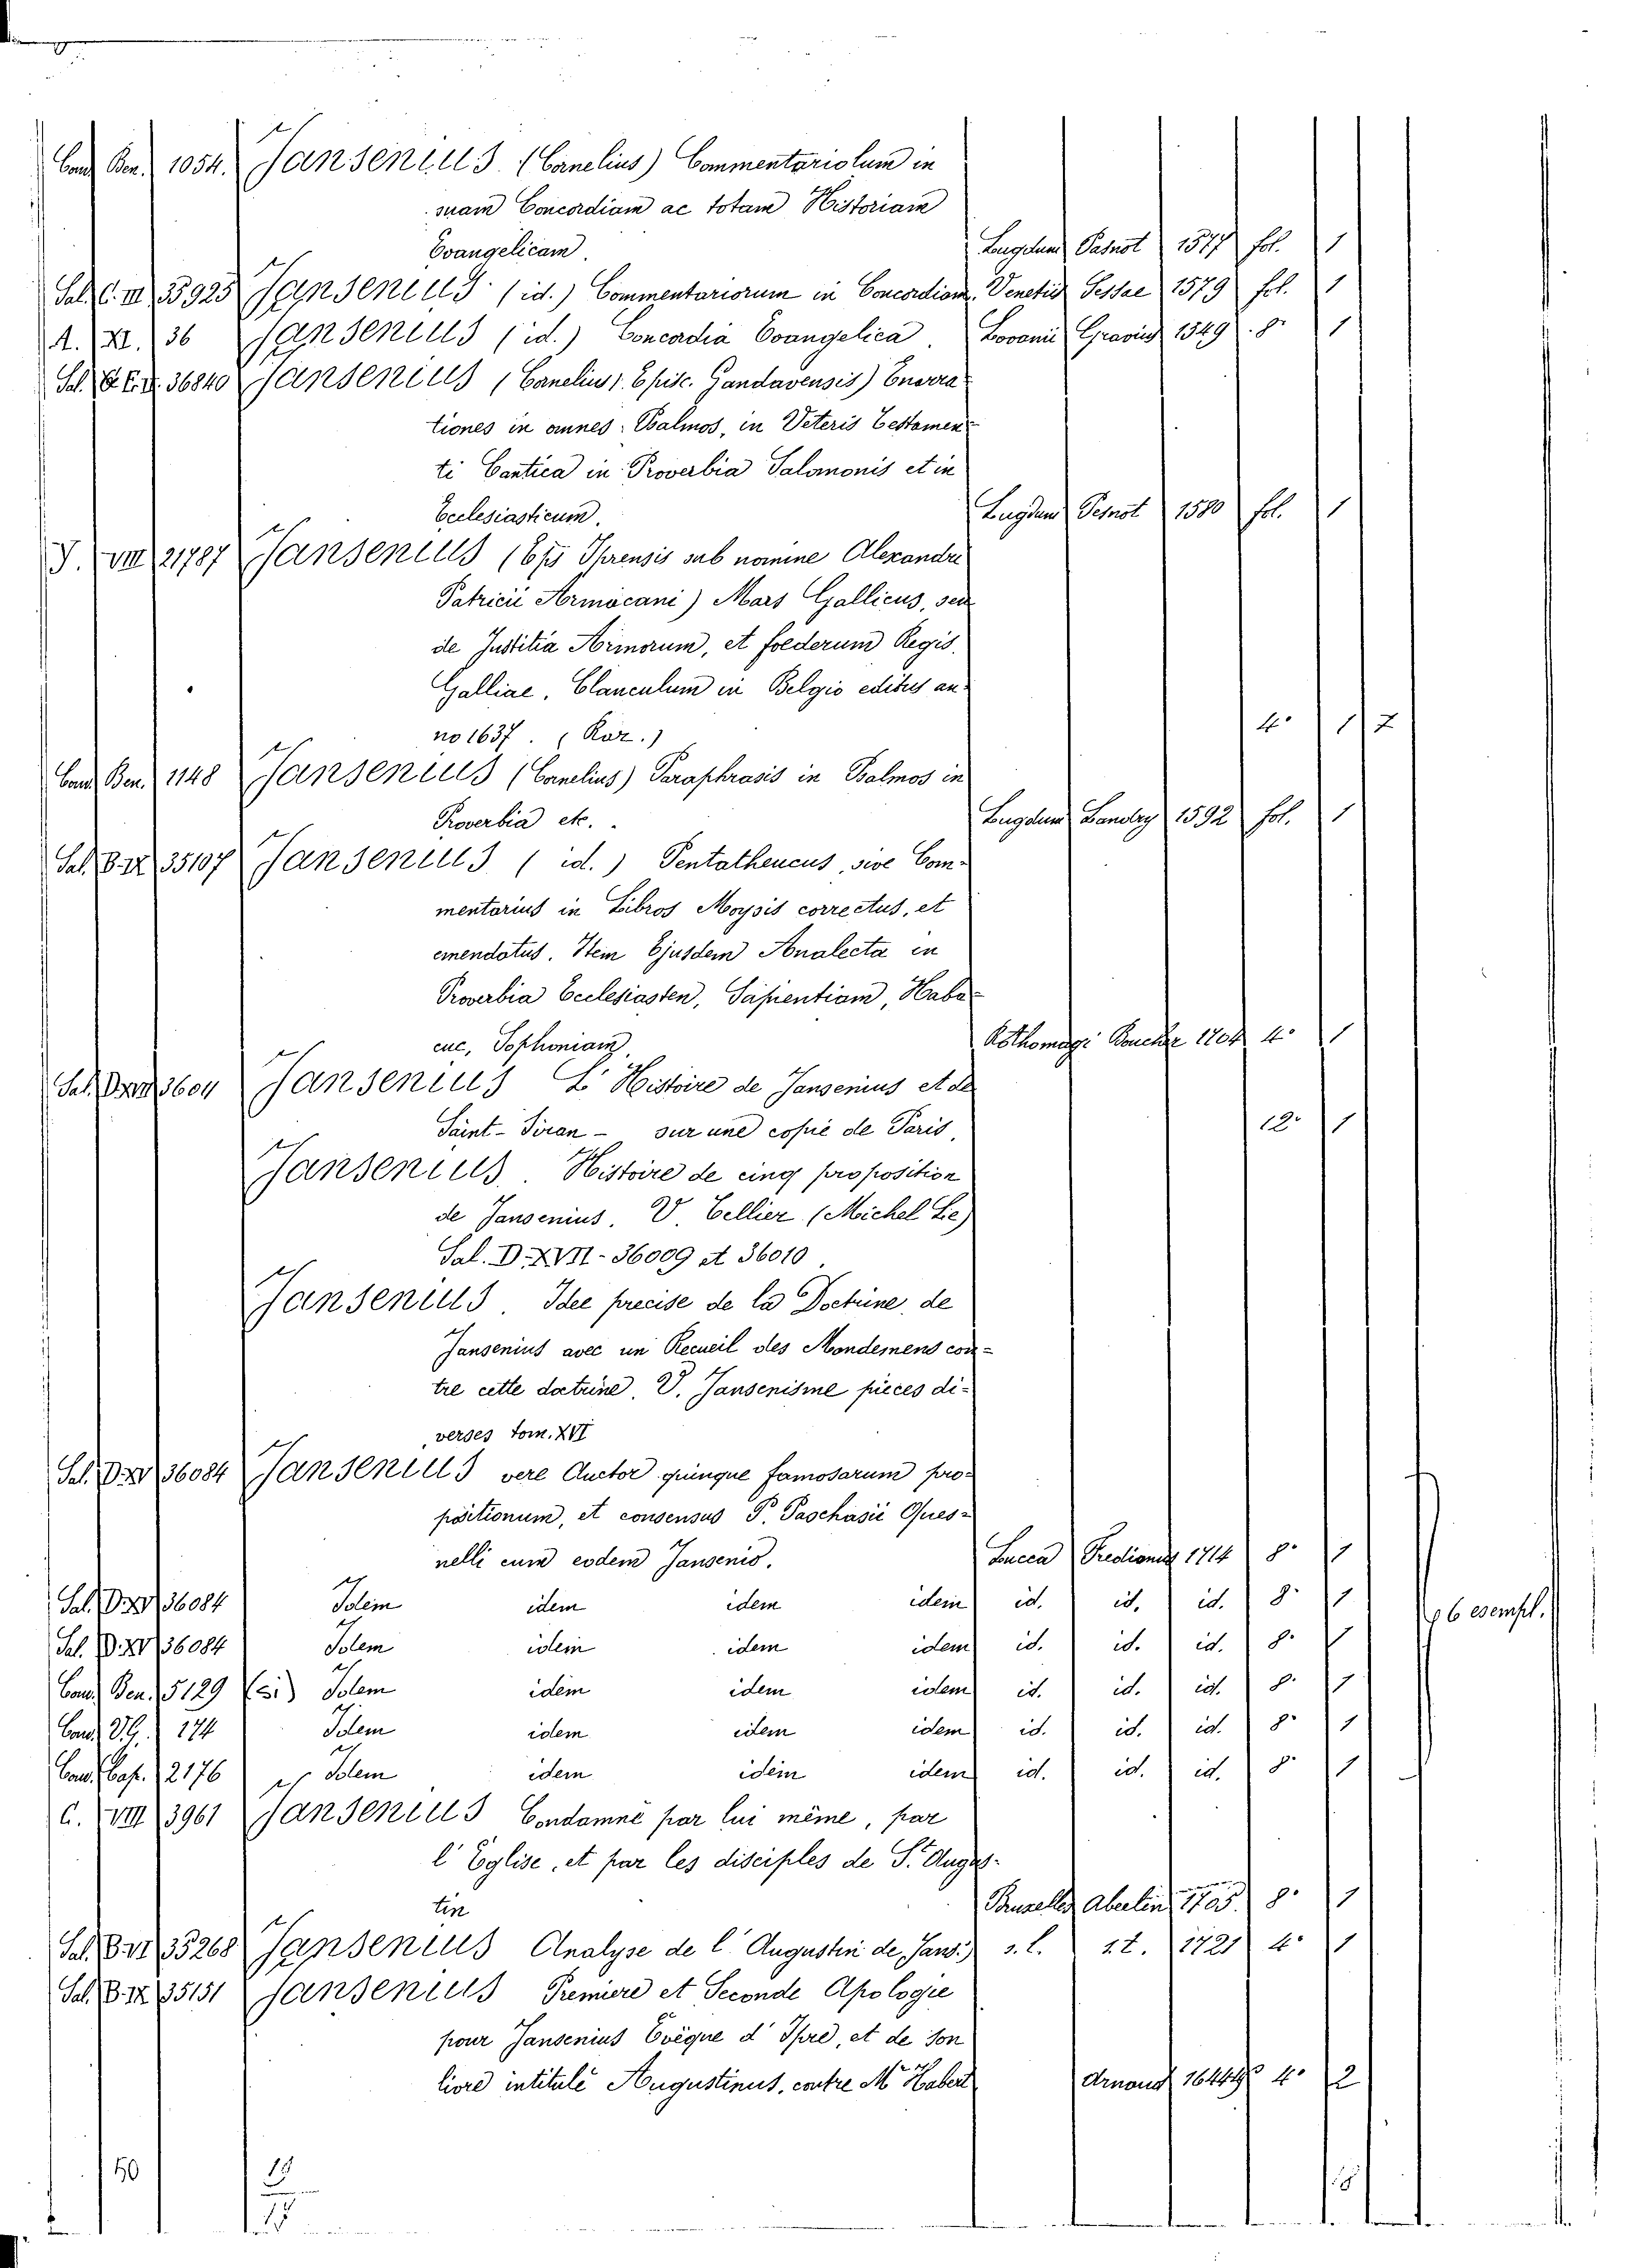 Cand Ben. 1054. Jansenius (Cornelius) Commentariolum in
suam Concordiam ac totam Historiam
Evangelicam. Lugduni Pesnot 1577 fol. 1
Sal. C. III 35925 Jansenius (id.) Commentariorum in Concordiam. Venetiis Sessae 1579 fol. 1
A. XI. 36 Jansenius (id.) Concordia Evangelica. Lovanii Gravius 1549. 8º 1
Sal. 36840 Jansenius (Cornelius). Episc. Gandavensis) Enarra-
tiones in omnes Psalmos, in Veteris Testamen-
ti Cantica in Proverbia Salomonis et in
Ecclesiasticum. Lugduni Pesnot 1580 fol. 1
J. VIII 21787 Jansenius (Eps Iprensis sub nomine Alexandri
Patricii Armacani) Mars Gallicus, seu
de Justitia Armorum, et foederum Regis
Galliae, Clanculum in Belgio editus an-
no 1637. (Rar.) 4º 1 7
Cand Ben. 1148 Jansenius (Cornelius) Paraphrasis in Psalmos in
Proverbia etc. Lugduni Landry 1592 fol. 1
Sal. B. IX 35107 Jansenius (id.) Pentatheucus, sive Com-
mentarius in Libros Moysis correctus, et
emendatus. Item Ejusdem Analecta in
Proverbia Ecclesiasten, Sapientiam, Haba-
cuc, Sophoniam. Rothomagi Boucher 1704 4º 1
Sal. 3604 Jansenius L' Histoire de Jansenius et de
Saint-Siran - sur une copie de Paris, 12º 1
Jansenius. Histoire de cinq proposition
de Jansenius. V. Tellier (Michel Le)
Sal. D. XVII - 36009 et 36010.
Jansenius. Idee precise de la Doctrine de
Jansenius avec un Recueil des Mondemens con-
tre cette doctrine. V. Jansenisme pieces di-
verses tom. XVI
Sal. D. XV 36084 Jansenius vere Auctor quinque famosarum pro-
positionum, et consensus P. Paschasii Ques-
nelli cum eodem Jansenio. Lucca Frediani 1714 8º 1
Sal. D. XV 36084 Idem idem idem idem id. id. id. 8º 1
Sal. D. XV 36084 Idem idem idem idem id. id. id. 8º 1
6 esempl.
Cand. Ben. 5129 (bis) Idem idem idem idem id. id. id. 8º 1
Cand. 174 Idem idem idem idem id. id. id. 8º 1
Cand. Cap. 2176 Idem idem idem idem id. id. id. 8º 1
C. VIII 3961 Jansenius Condamné par lui même, par
l' Eglise, et par les disciples de St. Augus-
tin Bruxelles Aberlin 1705. 8º 1
Sal. B. VI 35268 Jansenius Analyse de l' Augustin de Jans:) s. l. s. t. 1721 4º 1
Sal. B. IX 35151 Jansenius Premiere et Seconde Apologie
pour Jansenius Evêque d' Ipre, et de son
livre intitulé Augustinus, contre Mr. Habert Arnoud 4º 2
50